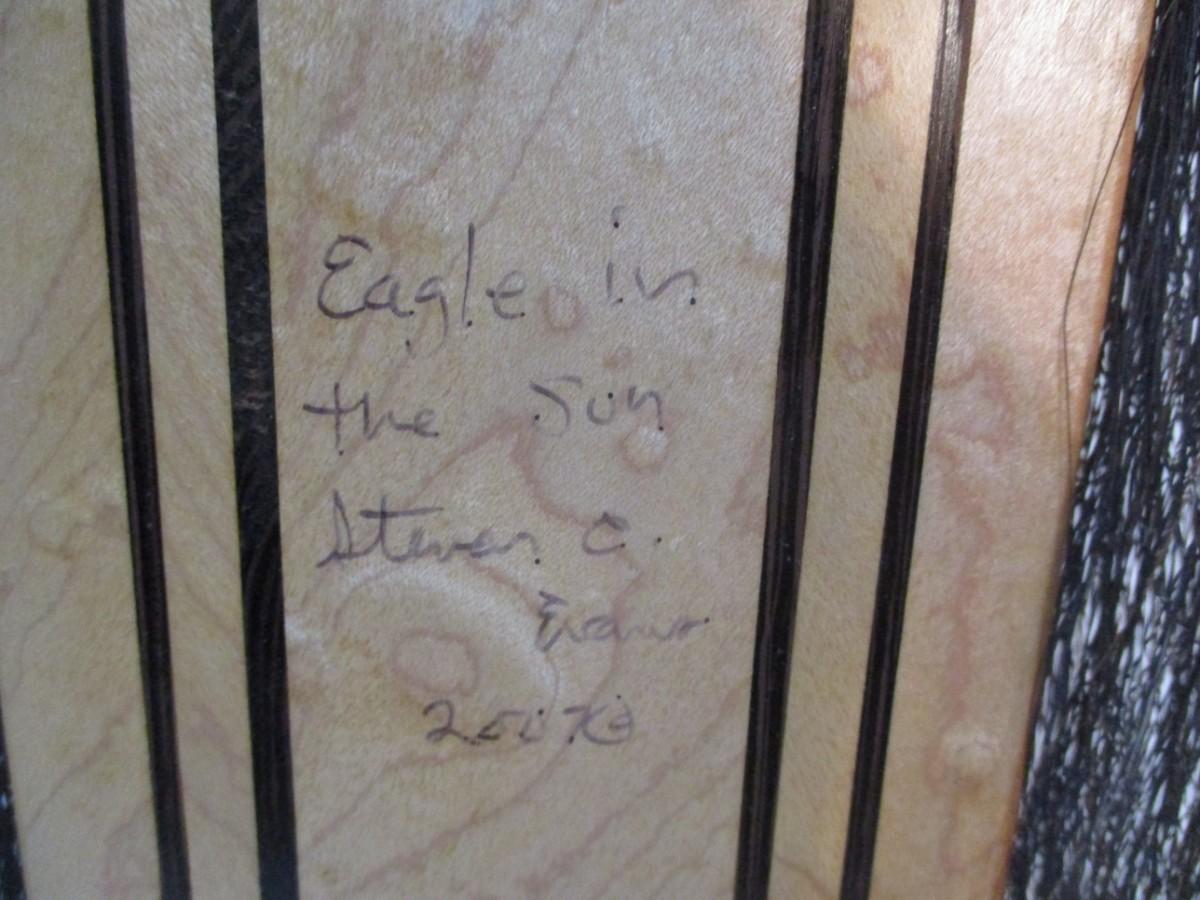 Eagle in
the Sun
Steven C.
Evans